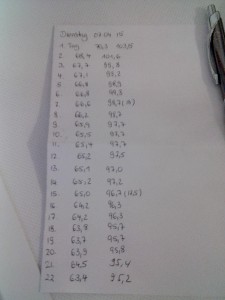 Dienstag 01.04.14
1. Tag
2. 68,4 101,6
3. 67,7 99,8
4. 67,1 99,3
5. 66,9 98,9
6. 66,8 98,8
7. 66,6
8. 66,2 98,7
9. 65,9 97,7
10. 65,5 97,7
11. 65,4 97,7
12. 65,2 97,5
13. 65,1 97,0
14. 65,2 97,2
15. 65,0 96,7
16. 64,2 96,3
17. 64,2 96,3
18. 63,8 95,7
19. 63,7 95,7
20. 63,9 95,8
21. 64,5 95,4
22. 63,4 95,2